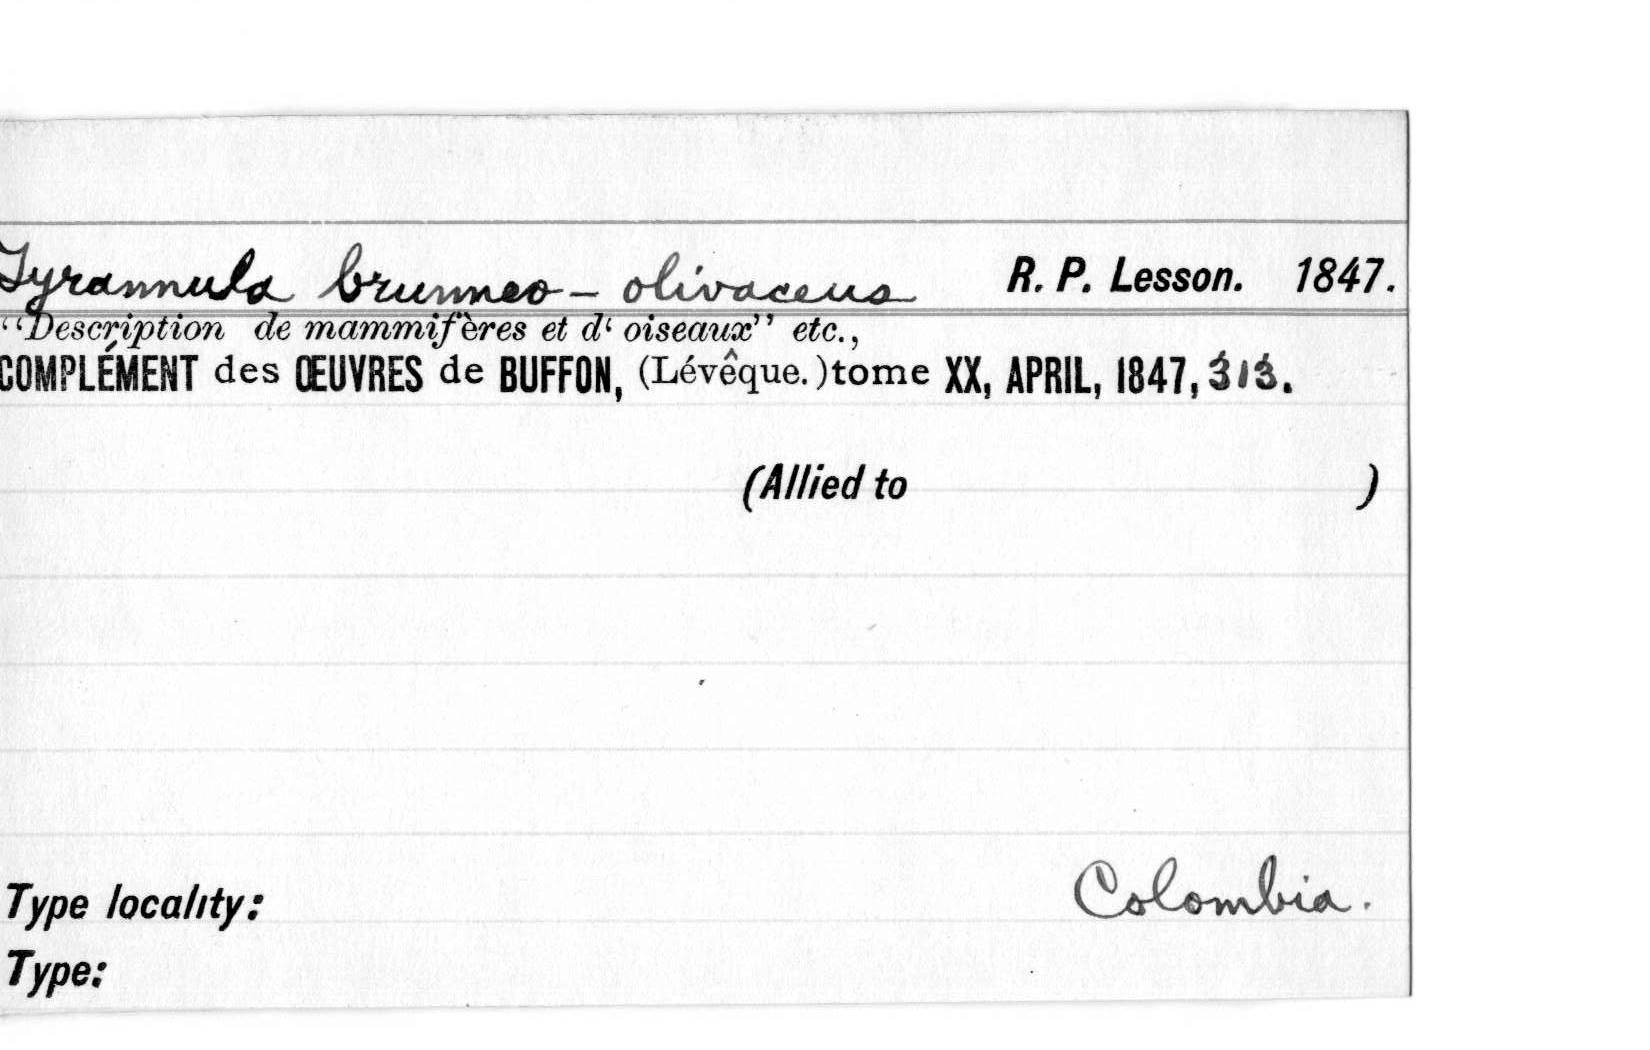 Tyrannula brunneo-olivaceus R. P. Lesson. 1847.
“Description de mammifères et d‘ oiseaux” etc.,
COMPLÉMENT des ŒUVRES de BUFFON, (Lévêque.) tome XX, APRIL, 1847, 313.
(Allied to )
Type locality: Colombia.
Type: